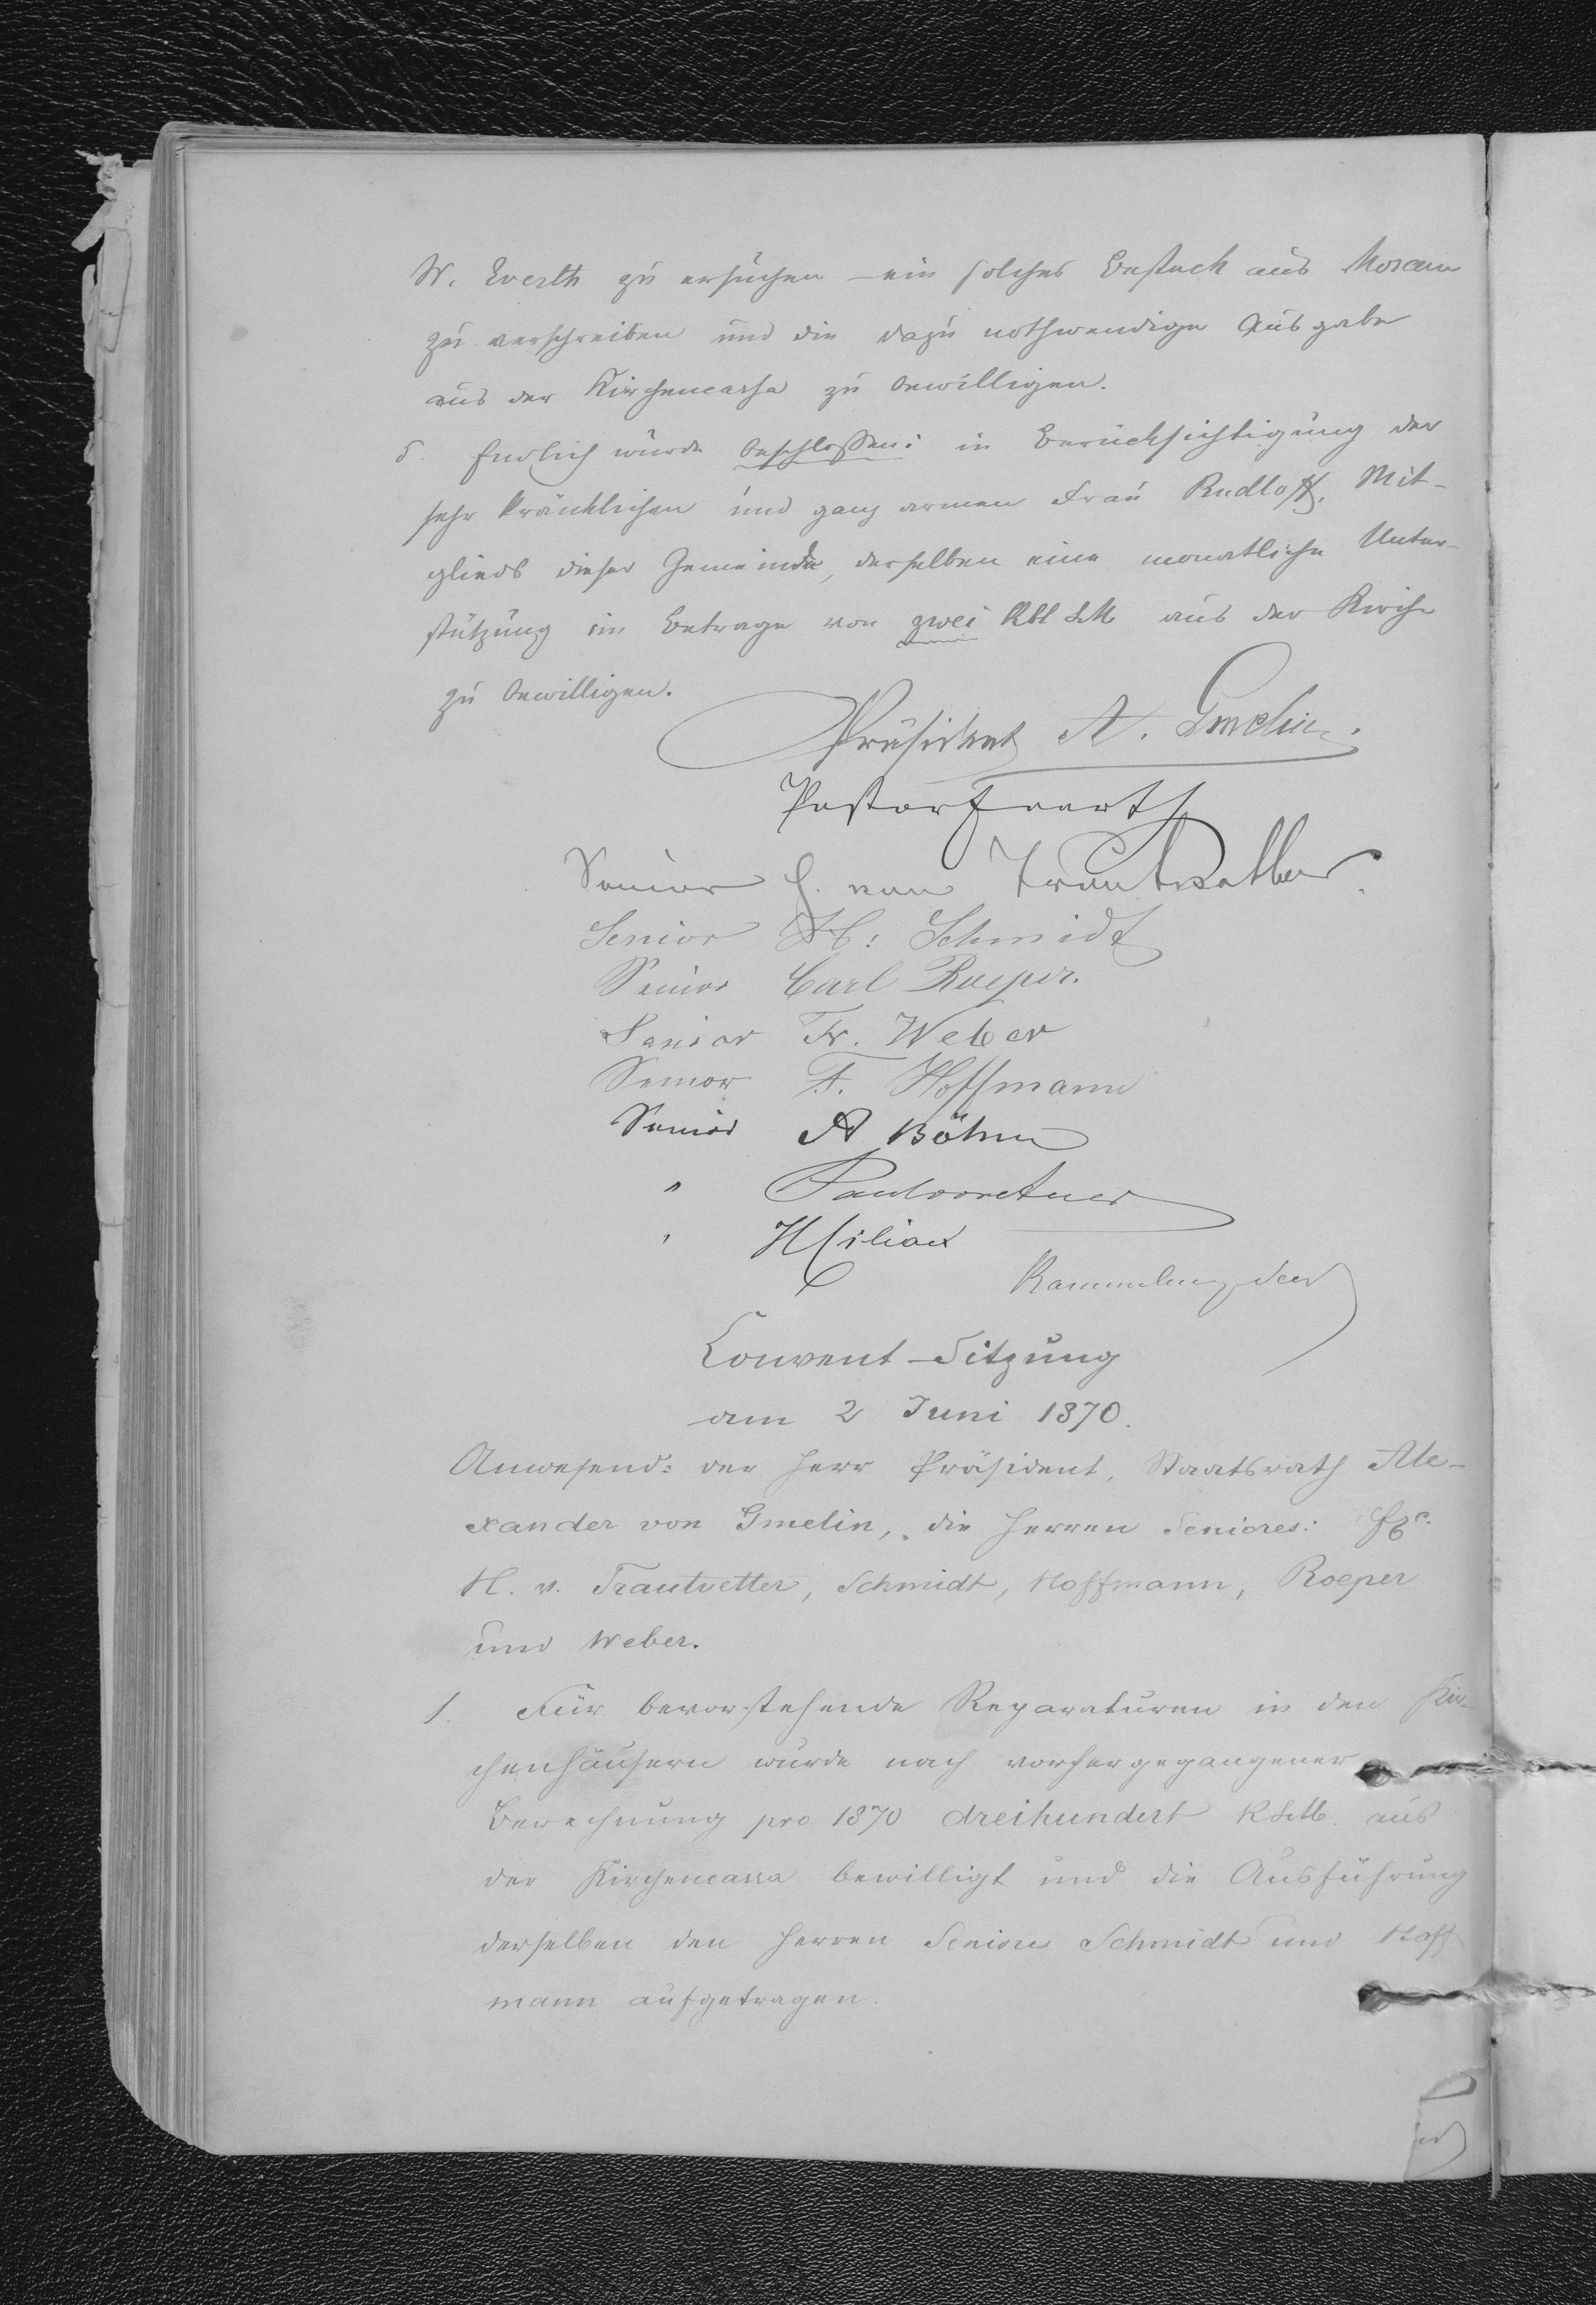 W. Everth zu ersuchen – ein solches Besteck aus Moscau
zu verschreiben und die dazu nothwendige Ausgabe
aus der Kirchencassa zu bewilligen.
5. Endlich wurde beschlossen: in Berücksichtigung der
sehr kränklichen und ganz armen Frau Rudloff, Mit-
glieds dieser Gemeinde, derselben eine monatliche Unter-
stützung im Betrage von zwei Rbl SM aus der Kirche
zu bewilligen.
Präsident A. Gmelin.
Pastor Everth
Senior H. von Trautvetter.
Senior H: Schmidt
Senior Carl Roeper.
Senior Fr. Weber
Senior F. Hoffmann
Senior A Böhm
"
" H Kilian
Convent-Sitzung
am 2 Juni 1870.
Anwesend: der Herr Präsident, Staatsrath Ale-
xander von Gmelin, die Herren Seniores:
H. v. Trautvetter, Schmidt, Hoffmann, Roeper
und Weber.
1. Für bevorstehende Reparaturen in den Kir-
chenhäusern wurde nach vorhergegangener
Berechnung pro 1870 dreihundert R SM. aus
der Kirchencassa bewilligt und die Ausführung
derselben den Herren Seniores Schmidt und Hoff
mann aufgetragen.